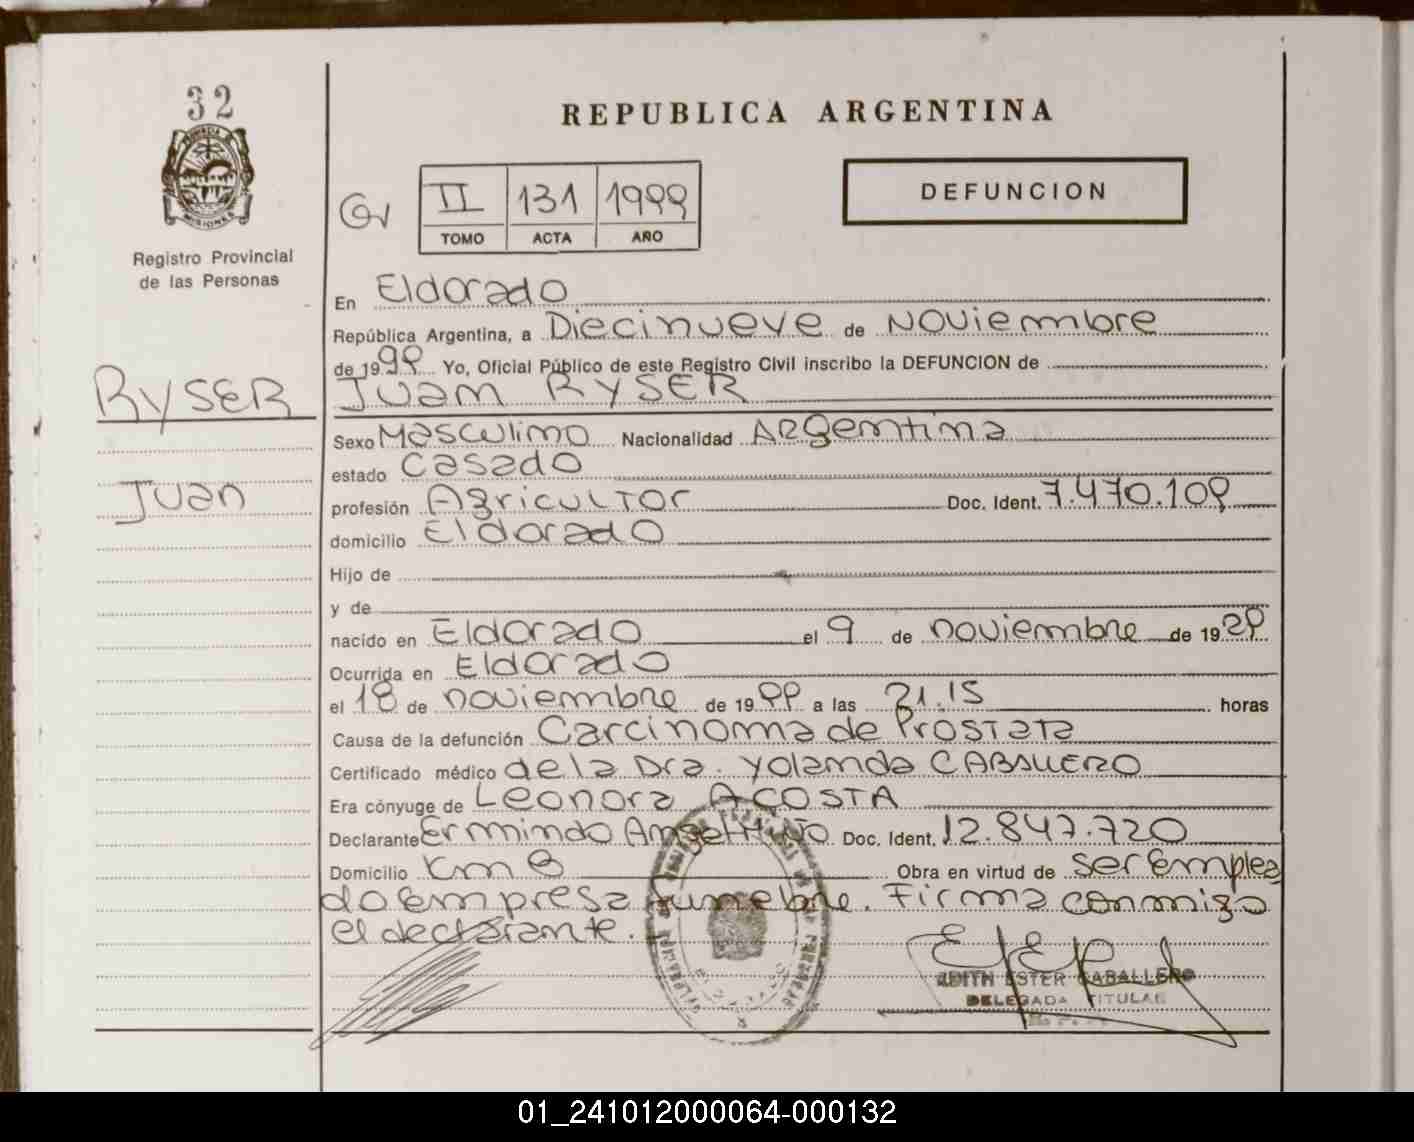 32
PROVINCIA DE
MISIONES
Registro Provincial
de las Personas
RYSER
Juan
REPUBLICA ARGENTINA
DEFUNCION
II 131 1999
TOMO ACTA AÑO
En Eldorado
República Argentina, a Diecinueve de Noviembre
de 1999 Yo, Oficial Público de este Registro Civil inscribo la DEFUNCION de
Juan RYSER
Sexo Masculino Nacionalidad Argentina
estado Casado
profesión Agricultor Doc. Ident. 7.470.109
domicilio Eldorado
Hijo de
y de
nacido en Eldorado el 9 de noviembre de 1929
Ocurrida en Eldorado
el 18 de noviembre de 1999 a las 21.15 horas
Causa de la defunción Carcinoma de Prostata
Certificado médico de la Dra. Yolanda CABALLERO
Era cónyuge de Leonora ACOSTA
Declarante Ermindo Doc. Ident. 12.847.720
Domicilio Km 8 Obra en virtud de ser emplea
do empresa funebre. Firma conmigo
el declarante.
EDITH ESTER CABALLERO
DELEGADA TITULAR
01_241012000064-000132